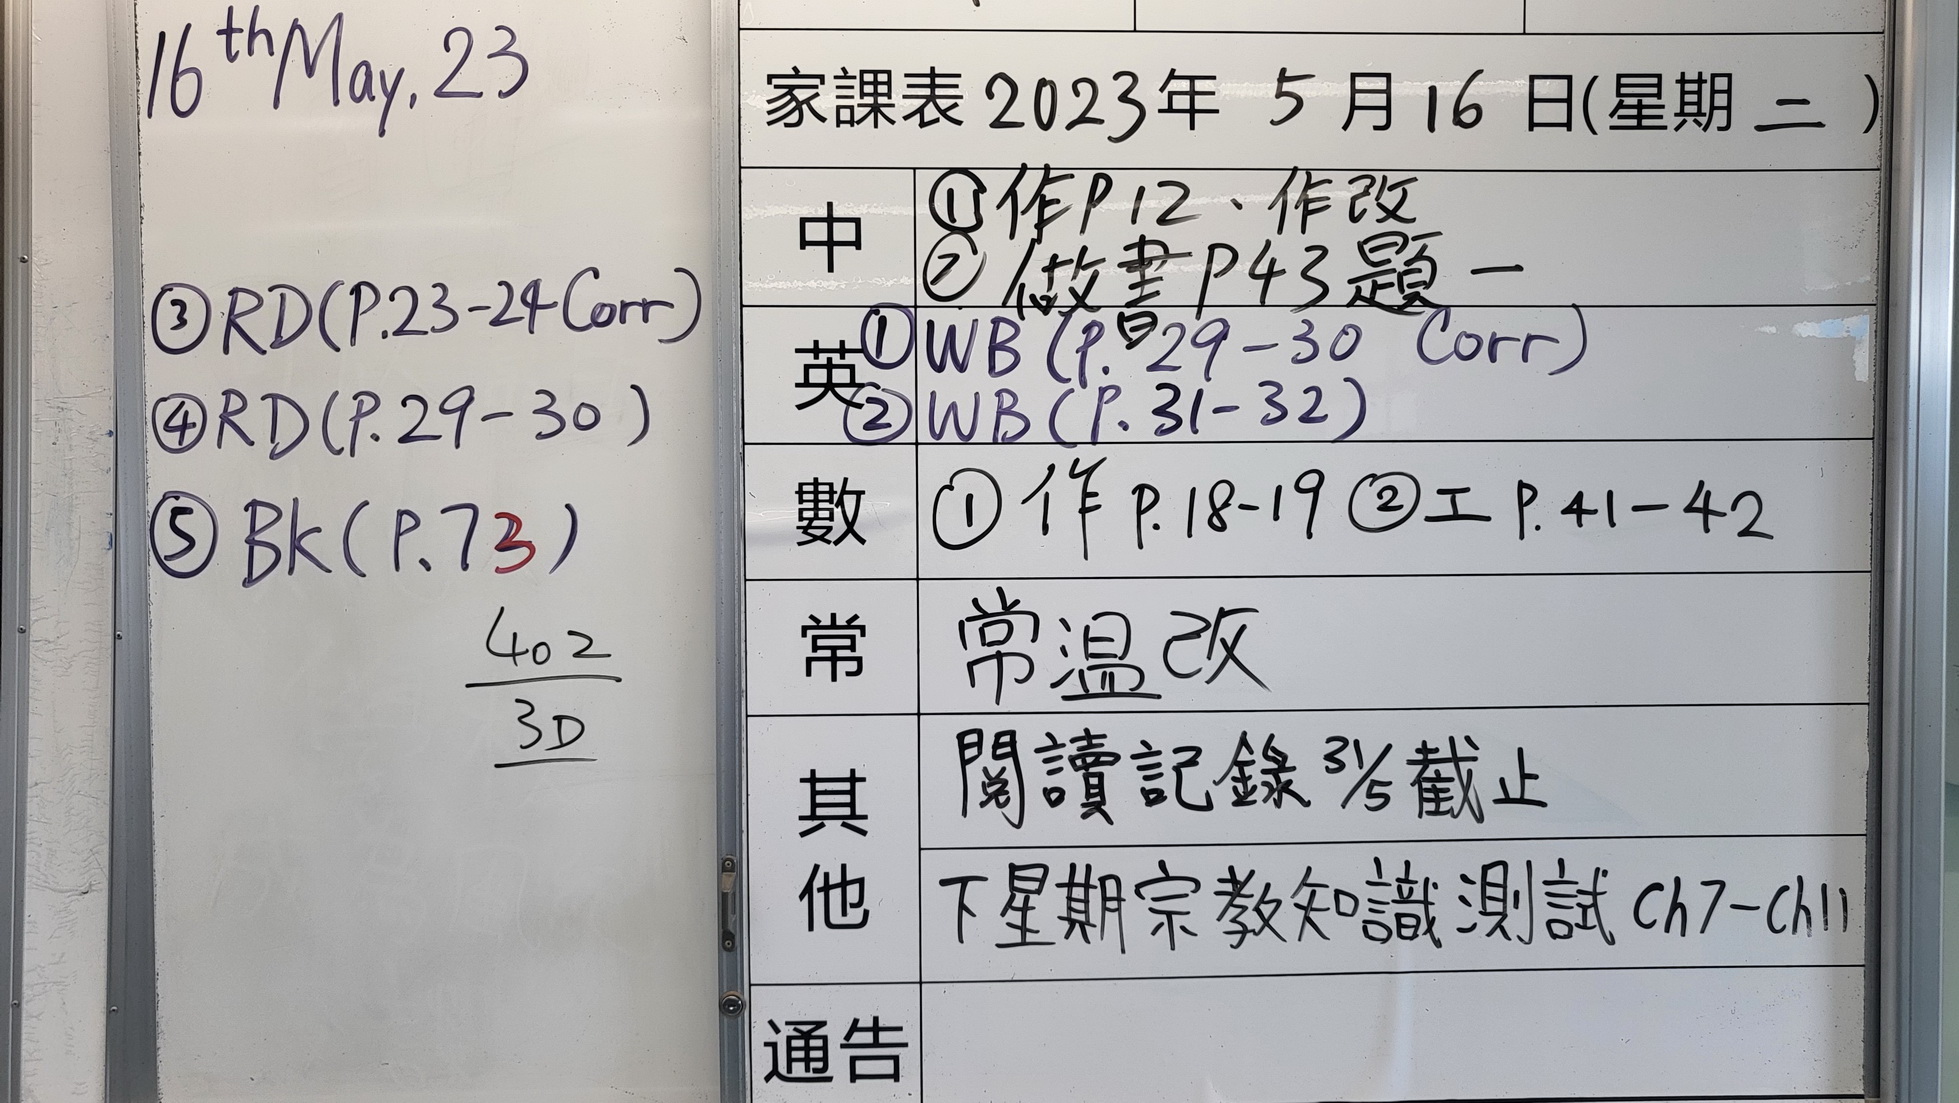 16th May, 23
③ RD (P.23-24 Corr)
④ RD (P.29-30)
⑤ BK (P.73)
402
3D
家課表 2023年 5月16日(星期二)
中
① 作P12、作改
② 做書P43題一
英
① WB (P.29-30 Corr)
② WB (P.31-32)
數
① 作 P.18-19 ② 工 P.41-42
常
常温改
其他
閱讀記錄 31/5 截止
下星期宗教知識測試 Ch7-Ch11
通告